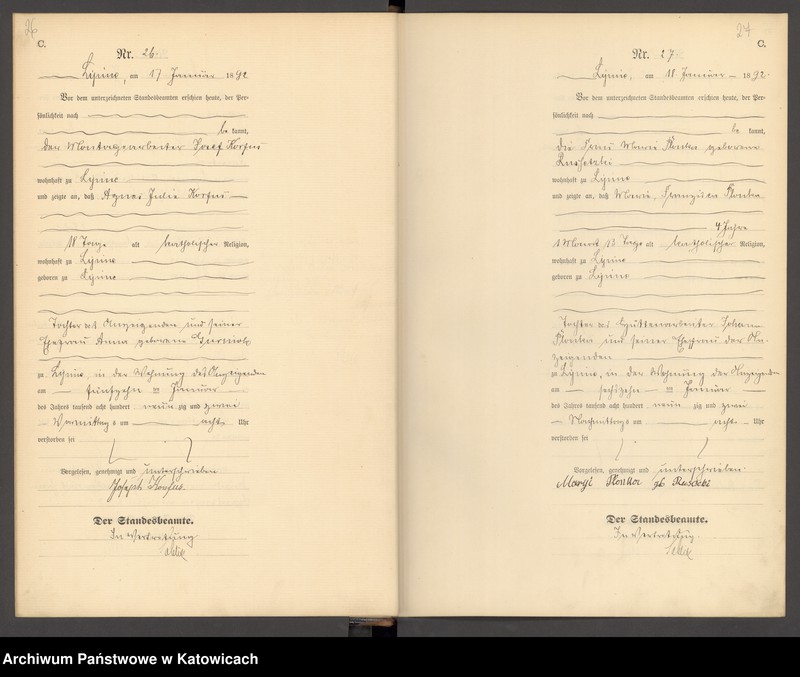 26
C.
Nr. 26.
Lipine, am 17 Januar 1892
Vor dem unterzeichneten Standesbeamten erschien heute, der Per-
sönlichkeit nach
be kannt,
der Montagearbeiter Josef Korfus
wohnhaft zu Lipine
und zeigte an, daß Agnes Julie Korfus
18 Tage alt katholischer Religion,
wohnhaft zu Lipine
geboren zu Lipine
Tochter des Anzeigenden und seiner
Ehefrau Anna geborene
zu Lipine, in der Wohnung des Anzeigenden
am fünfzehn ten Januar
des Jahres tausend acht hundert neun zig und zwei
Vormittags um acht Uhr
verstorben sei
Vorgelesen, genehmigt und unterschrieben
Joseph Korfus.
Der Standesbeamte.
In Vertretung
C.
Nr. 27
Lipine, am 18 Januar 1892.
Vor dem unterzeichneten Standesbeamten erschien heute, der Per-
sönlichkeit nach
be kannt,
die Frau Marie Plonka geborene
wohnhaft zu Lipine
und zeigte an, daß Marie, Franziska Plonka
4 Jahre
1 Monat 13 Tage alt katholischer Religion,
wohnhaft zu Lipine
geboren zu Lipine
Tochter des Hüttenarbeiter Johann
Plonka und seiner Ehefrau der An-
zeigenden
zu Lipine, in der Wohnung der Anzeigenden
am sechszehn ten Januar
des Jahres tausend acht hundert neun zig und zwei
Nachmittags um acht Uhr
verstorben sei
Vorgelesen, genehmigt und unterschrieben.
Maryi Plonka gb
Der Standesbeamte.
In Vertretung.
Archiwum Państwowe w Katowicach